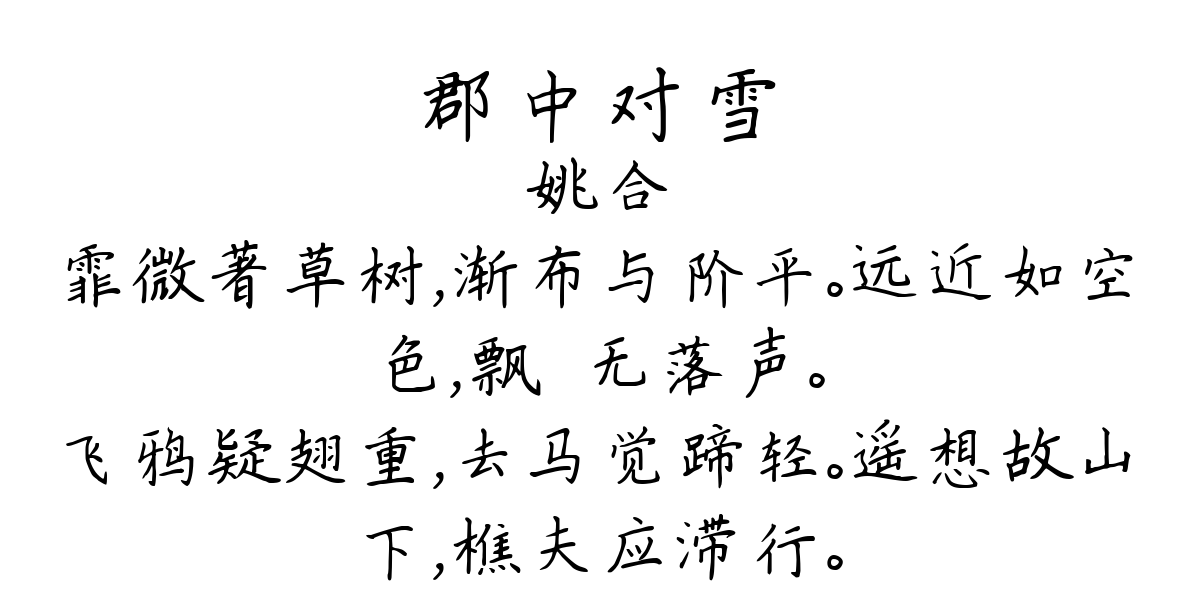 郡中对雪
姚合
霏微著草树,渐布与阶平。远近如空
色,飘 无落声。
飞鸦疑翅重,去马觉蹄轻。遥想故山
下,樵夫应滞行。